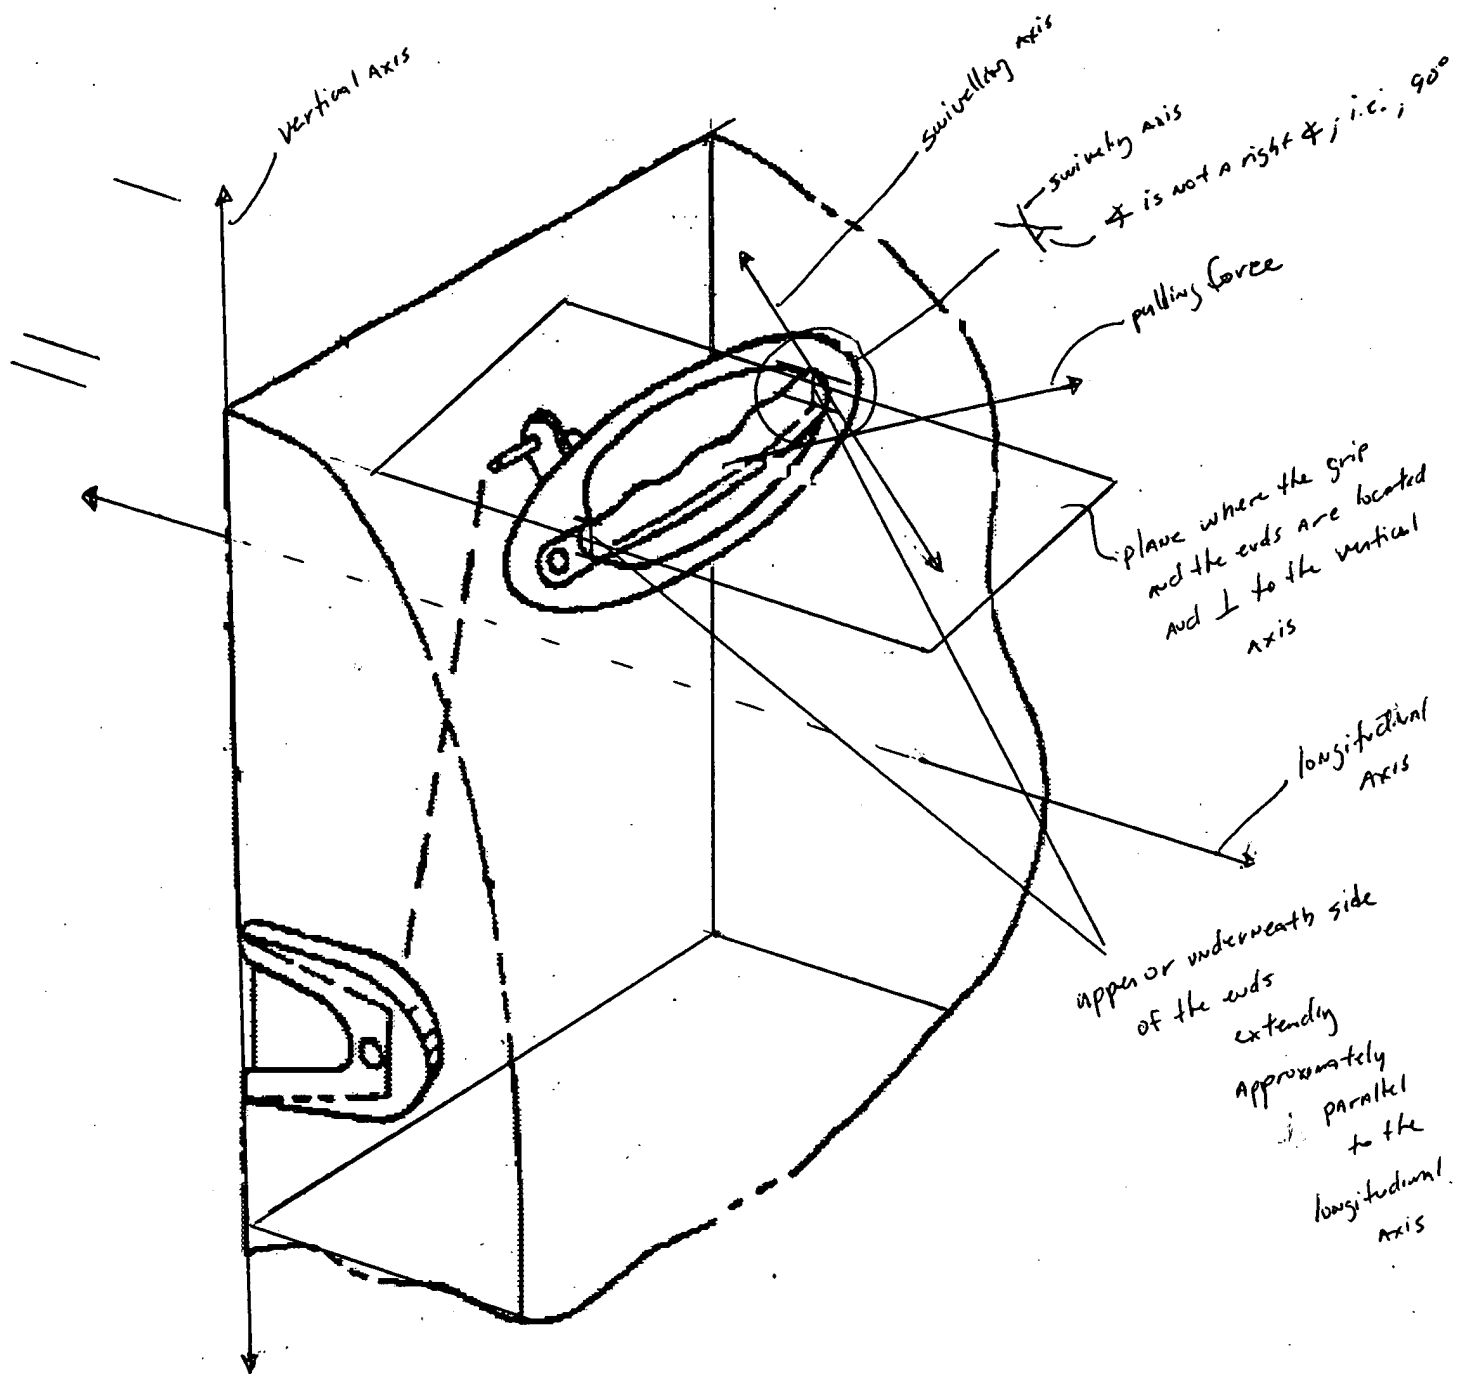 vertical axis
swivelling axis
swively axis
∡ is not a right ∡, i.e., 90°
pulling force
plane where the grip
and the ends are located
and ⊥ to the vertical
axis
longitudinal
axis
upper or underneath side
of the ends
extending
approximately
parallel
to the
longitudinal
axis